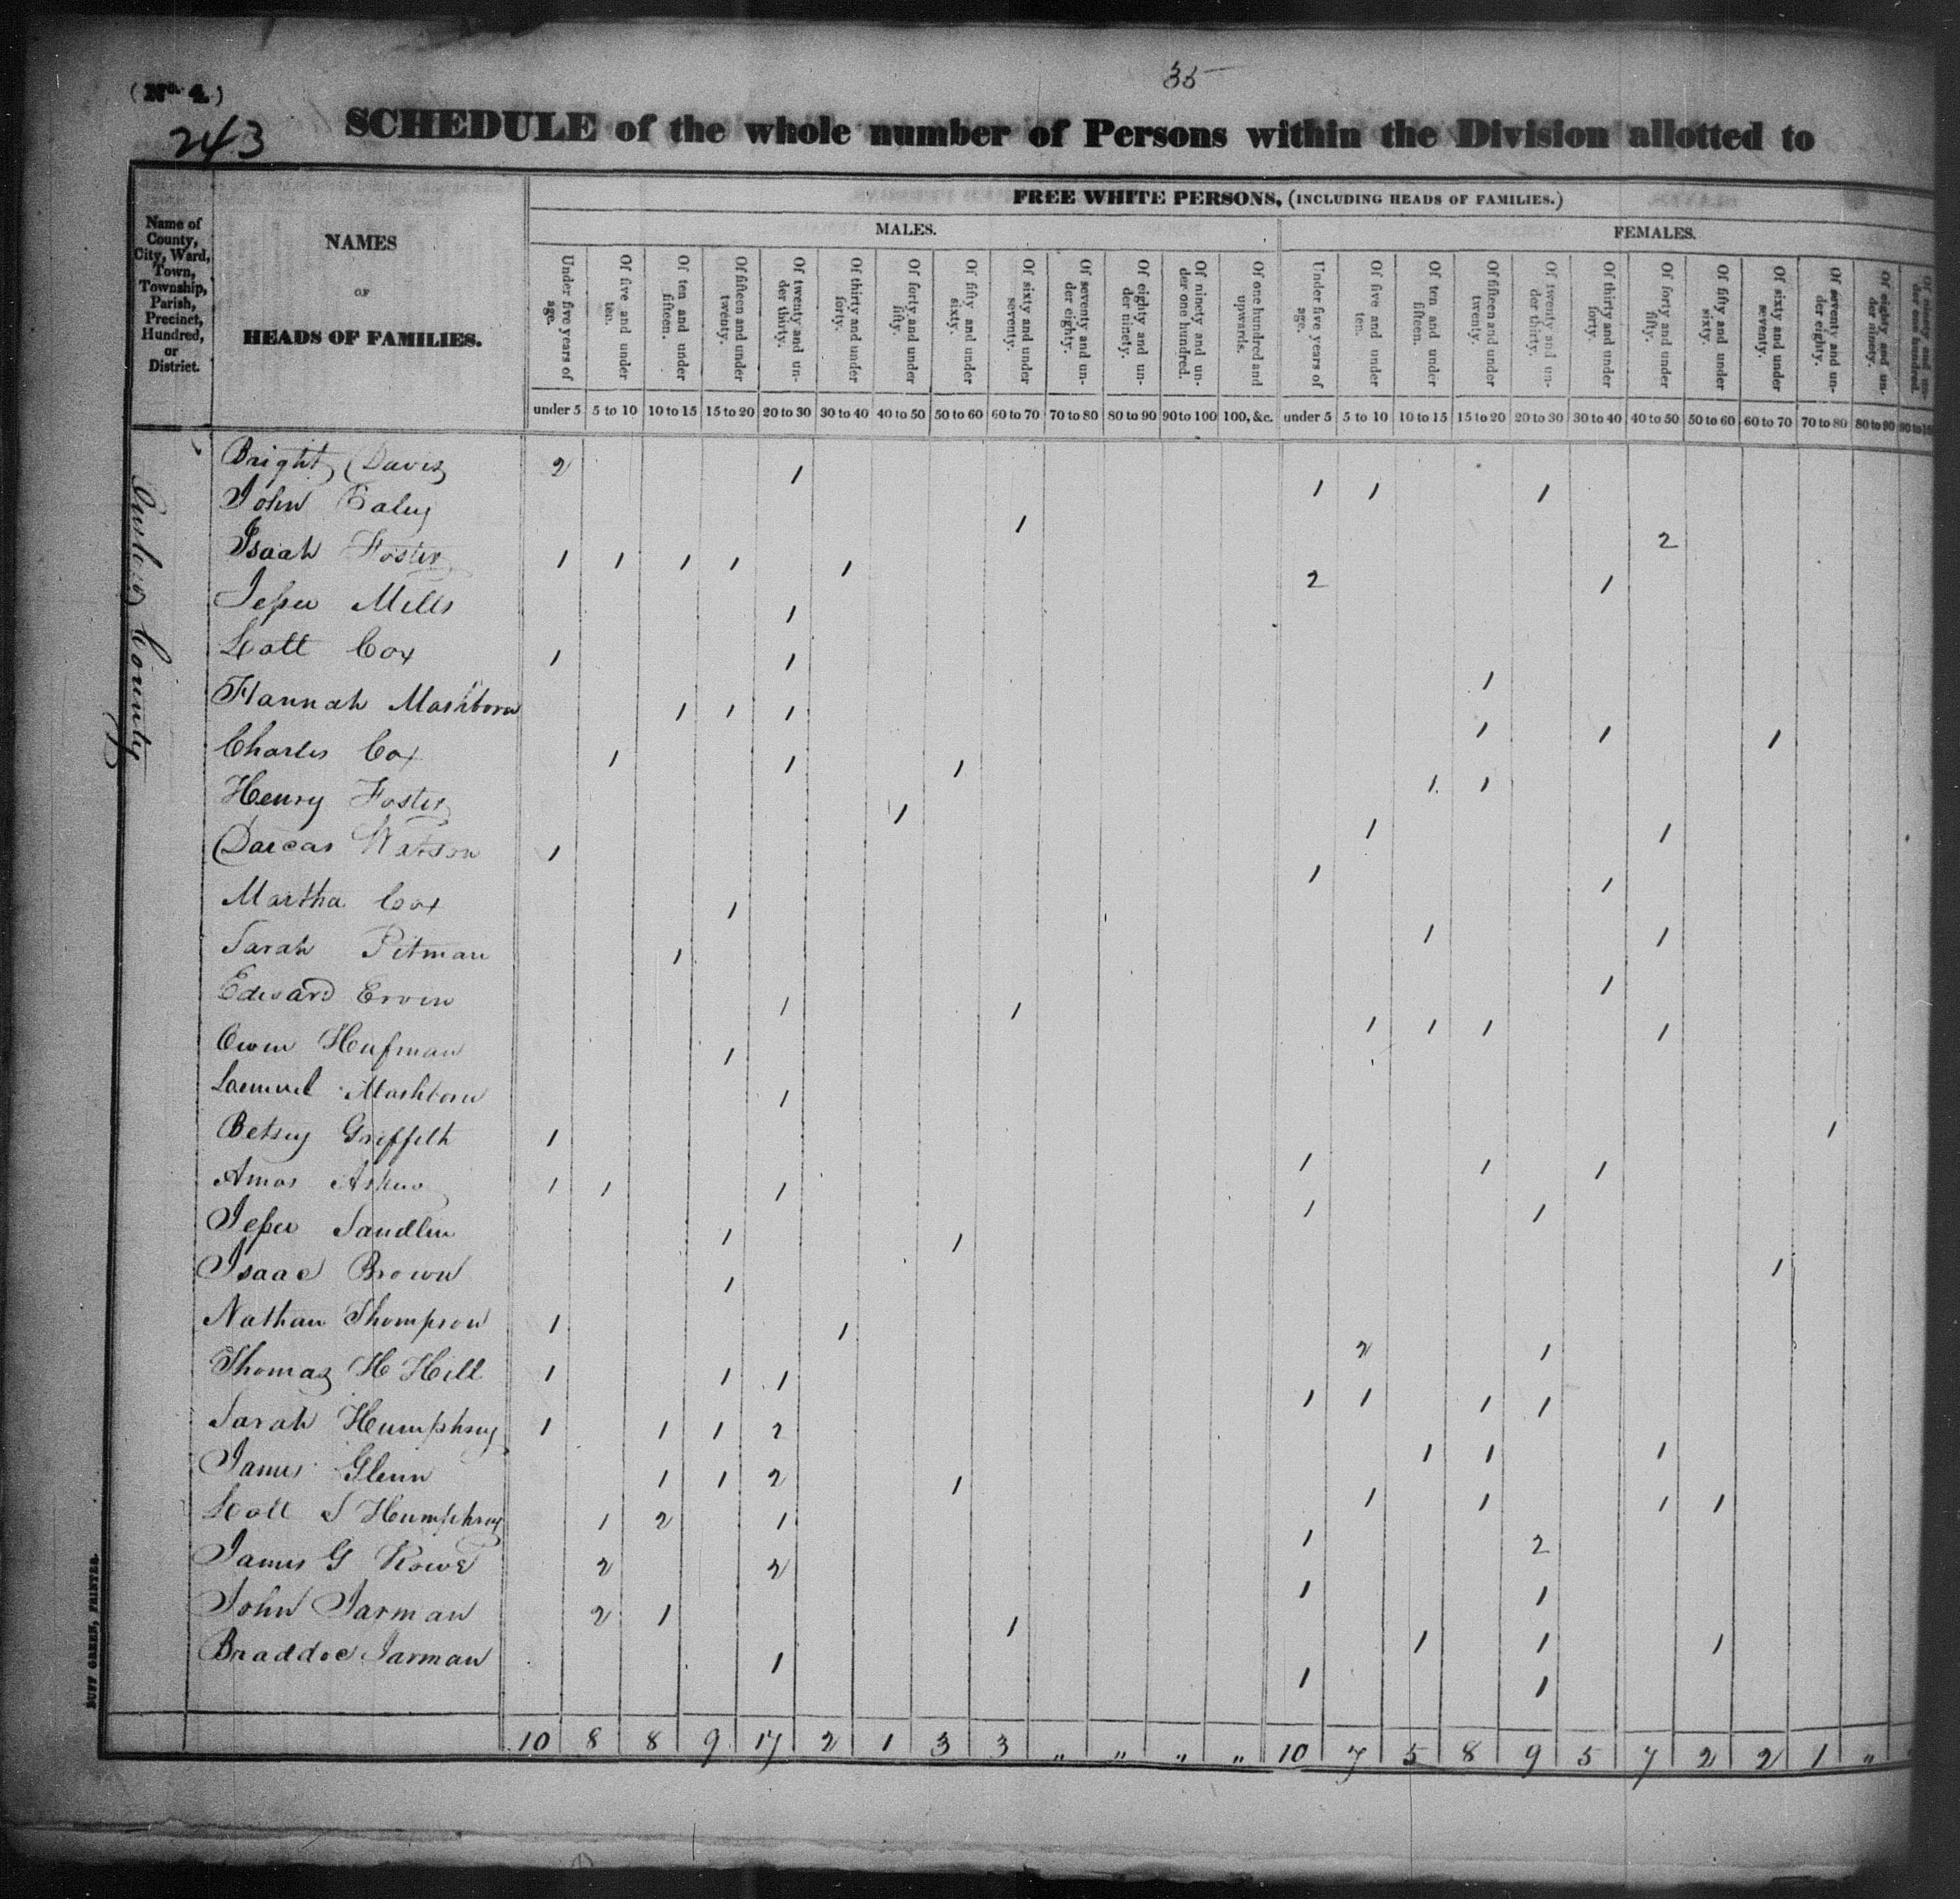 35
(No. 4.)
243
SCHEDULE of the whole number of Persons within the Division allotted to
Name of County, City, Ward, Town, Township, Parish, Precinct, Hundred, or District.
NAMES OF HEADS OF FAMILIES.
FREE WHITE PERSONS, (INCLUDING HEADS OF FAMILIES.)
MALES. FEMALES.
Under five years of age. Of five and under ten. Of ten and under fifteen. Of fifteen and under twenty. Of twenty and under thirty. Of thirty and under forty. Of forty and under fifty. Of fifty and under sixty. Of sixty and under seventy. Of seventy and under eighty. Of eighty and under ninety. Of ninety and under one hundred. Of one hundred and upwards. Under five years of age. Of five and under ten. Of ten and under fifteen. Of fifteen and under twenty. Of twenty and under thirty. Of thirty and under forty. Of forty and under fifty. Of fifty and under sixty. Of sixty and under seventy. Of seventy and under eighty. Of eighty and under ninety. Of ninety and under one hundred.
under 5 5 to 10 10 to 15 15 to 20 20 to 30 30 to 40 40 to 50 50 to 60 60 to 70 70 to 80 80 to 90 90 to 100 100, &c. under 5 5 to 10 10 to 15 15 to 20 20 to 30 30 to 40 40 to 50 50 to 60 60 to 70 70 to 80 80 to 90
County
Bright Davis 2 1 1 1 1
John 1 2
Isaah Foster 1 1 1 1 1 2 1
Jesse Mills 1
Lott Cox 1 1 1
Hannah Mashborn 1 1 1 1 1 1
Charles Cox 1 1 1 1 1
Henry Foster 1 1 1
Darcas Watson 1 1 1
Martha Cox 1 1 1
Sarah Pitman 1 1
Edward Ervin 1 1 1 1 1 1
Owen Hufman 1
Laemuel Mashborn 1
Betsey Griffith 1 1 1 1 1
Amos Askew 1 1 1 1 1
Jesse Sandlin 1 1 1
Isaac Brown 1
Nathan Thompson 1 1 2 1
Thomas H Hill 1 1 1 1 1 1 1
Sarah Humphrey 1 1 1 2 1 1 1
James Glenn 1 1 2 1 1 1 1 1
Lott S Humphrey 1 2 1 1 2
James G Rowe 2 2 1 1
John Jarman 2 1 1 1 1 1
Braddoc Jarman 1 1 1
10 8 8 9 17 2 1 3 3 " " " " 10 7 5 8 9 5 7 2 2 1 "
DUFF GREEN, PRINTER.